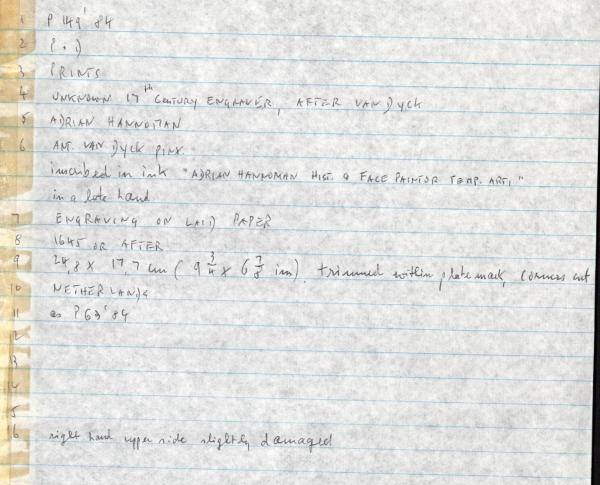 1 P 149'84
2 P.D
3 PRINTS
4 UNKNOWN 17th CENTURY ENGRAVER, AFTER VAN DYCK
5 ADRIAN HANNOMAN
6 ANT. VAN DYCK PINX
inscribed in ink "ADRIAN HANNOMAN HIST. & FACE PAINTOR TEMP. ART,"
in a late hand
7 ENGRAVING ON LAID PAPER
8 1645 OR AFTER
9 24,8 x 17,7 cm ( 9 3/4 x 6 7/8 in) . trimmed within platemark, corners cut
10 NETHERLANDS
11 as P63'84
12
13
14
5
16 right hand upper side slightly damaged